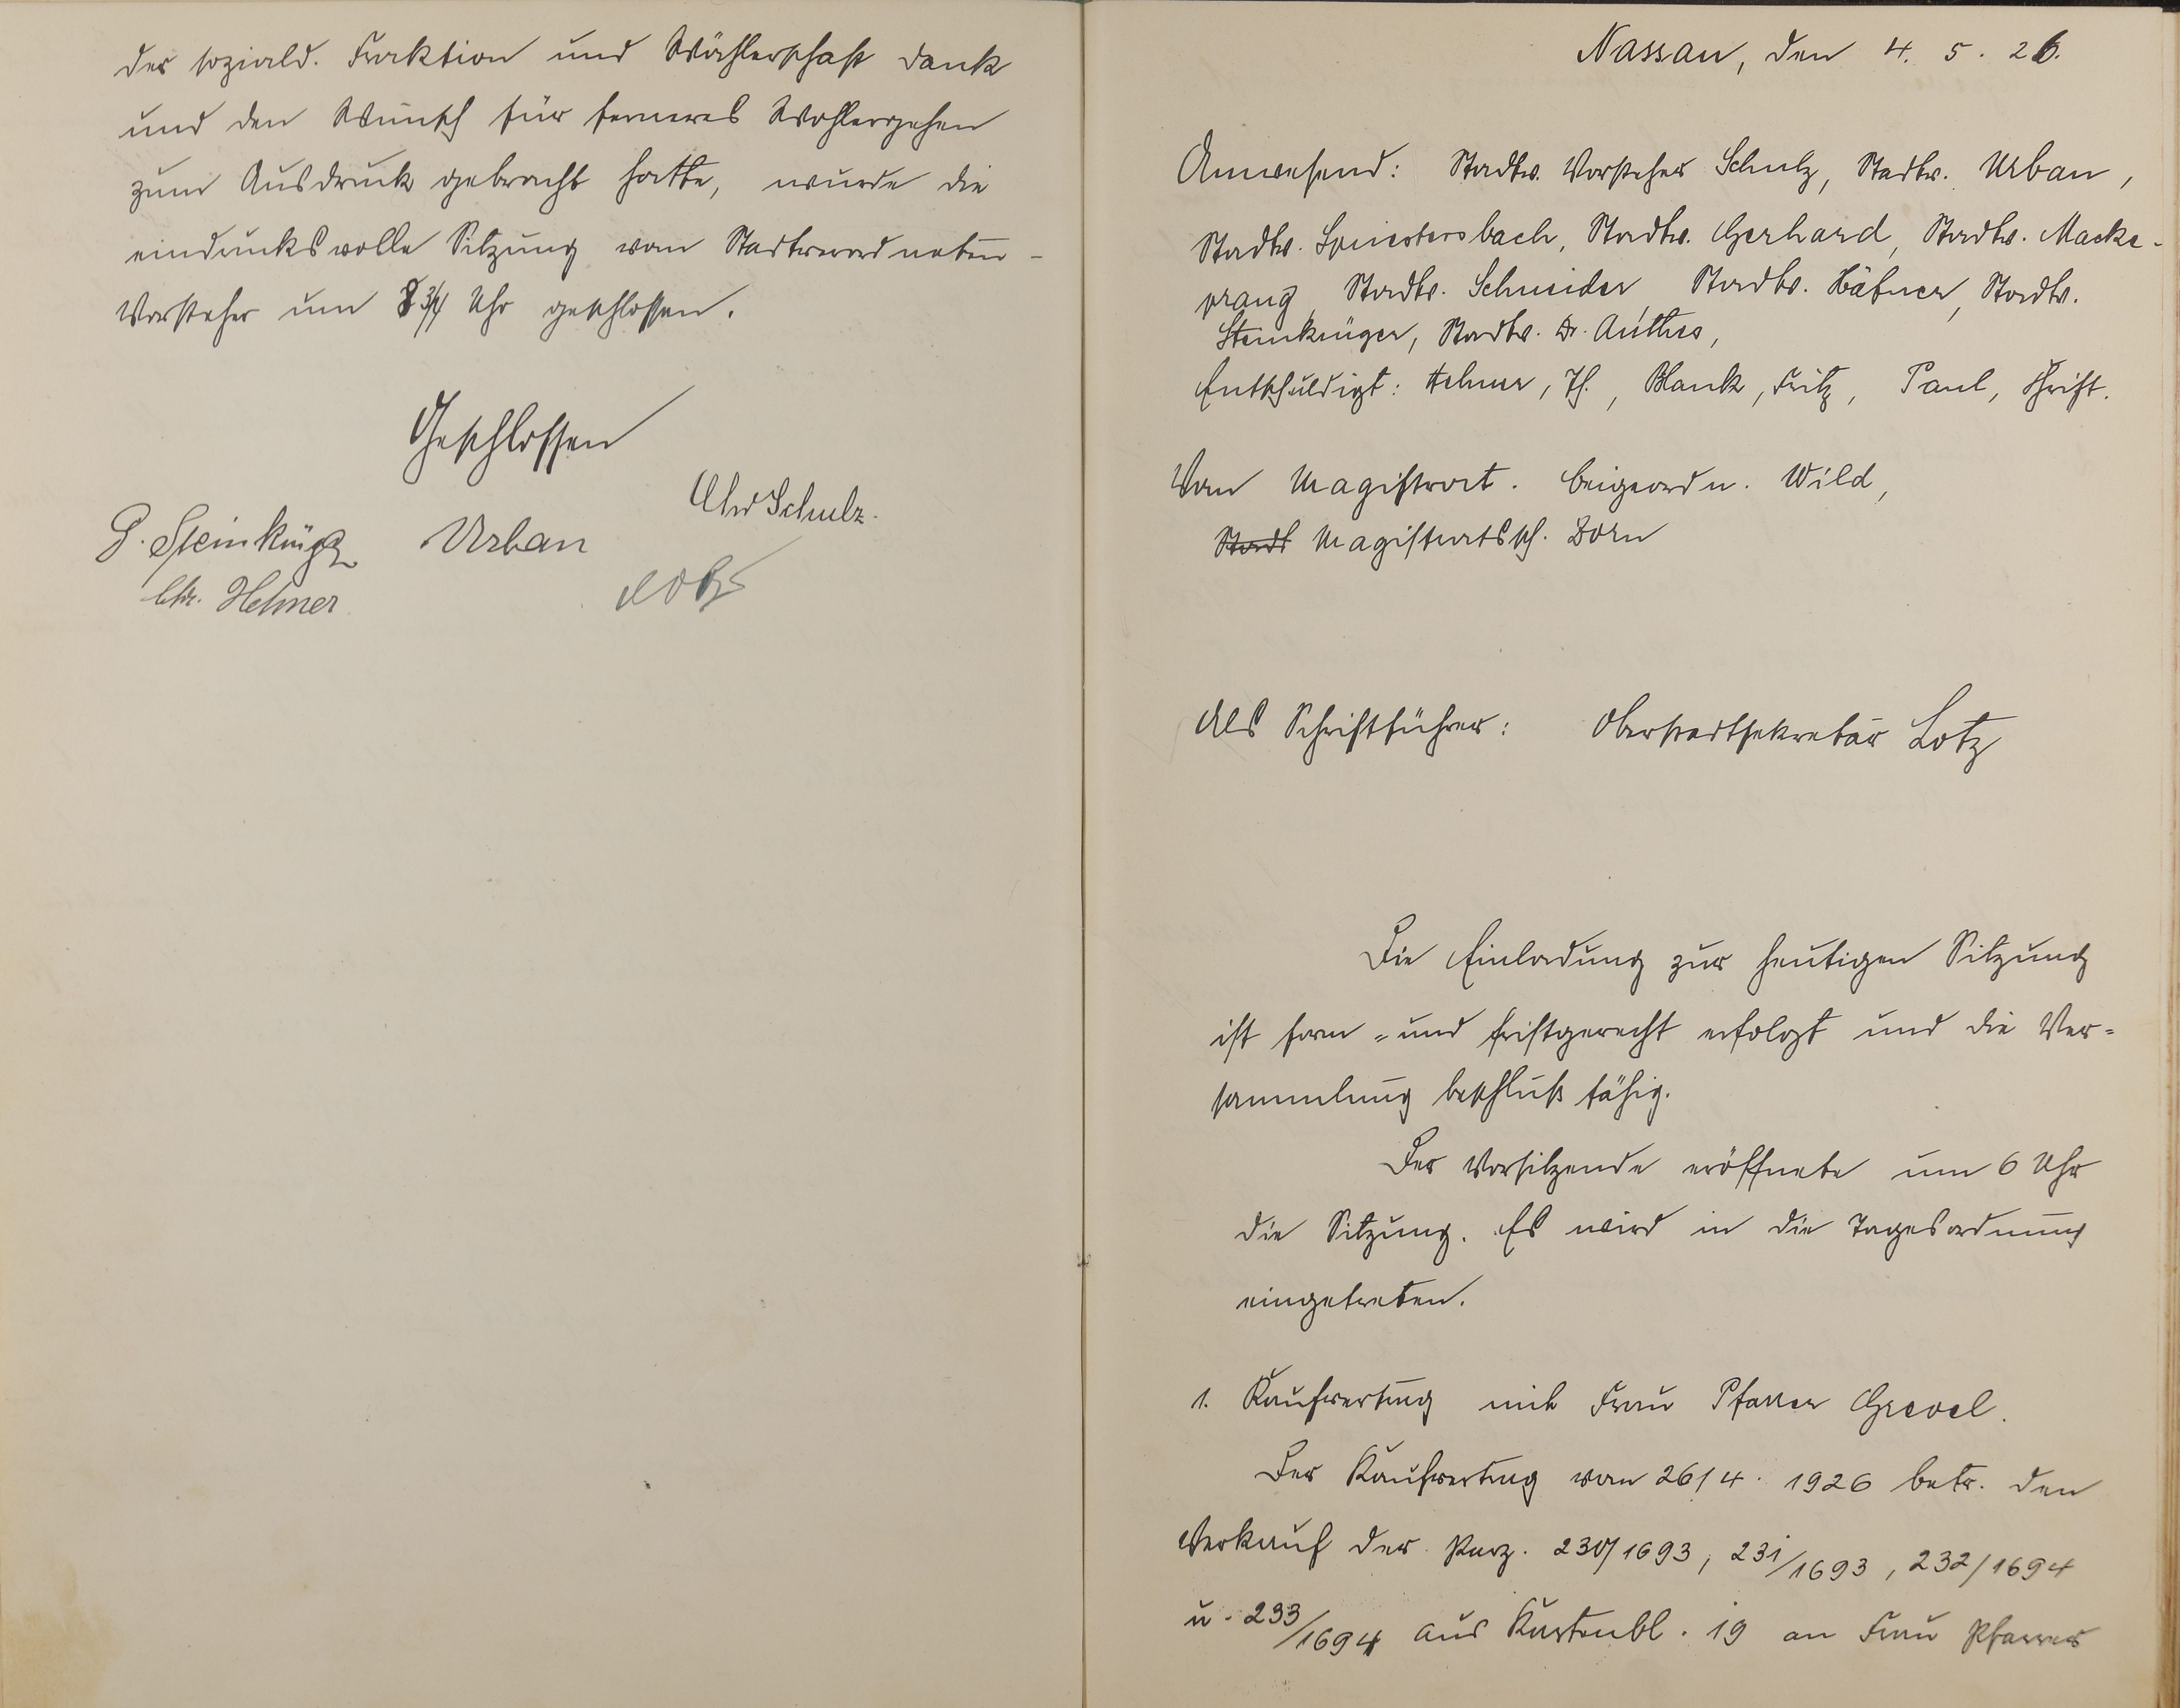 der soziald. Fraktion und Wählerschaft Dank
und den Wunsch für ferneres Wohlergehen
zum Ausdruck gebracht hatte, wurde die
eindrucksvolle Sitzung vom Stadtverordneten-
Vorsteher um 8 3/4 Uhr geschlossen.
Geschlossen
Chr Schulz.
G. Steinkrüger Urban
Chr. Helmer
Lotz
Nassau, den 4. 5. 26.
Anwesend: Stadtv. Vorsteher Schulz, Stadtv. Urban,
Stadtv. Spriestersbach, Stadtv. Gerhard, Stadtv. Macke-
prang, Stadtv. Schneider Stadtv. Häfner, Stadtv.
Steinkrüger, Stadtv. Dr. Anthes,
Entschuldigt: Helmer, Th., Blank, Fritz, Paul,
Vom Magistrat. Beigeordn. Wild,
Stadt Magistratssch. Born
Als Schriftführer: Oberstadtsekretär Lotz
Die Einladung zur heutigen Sitzung
ist form- und fristgerecht erfolgt und die Ver-
sammlung beschlußfähig.
Der Vorsitzende eröffnete um 6 Uhr
die Sitzung. Es wird in die Tagesordnung
eingetreten.
1. Kaufvertrag mit Frau Pfarrer Grevel.
Der Kaufvertrag vom 26/4. 1926 betr. den
Verkauf der Parz. 230/1693, 231/1693, 232/1694
u. 233/1694 aus Kartenbl. 19 an Frau Pfarrer